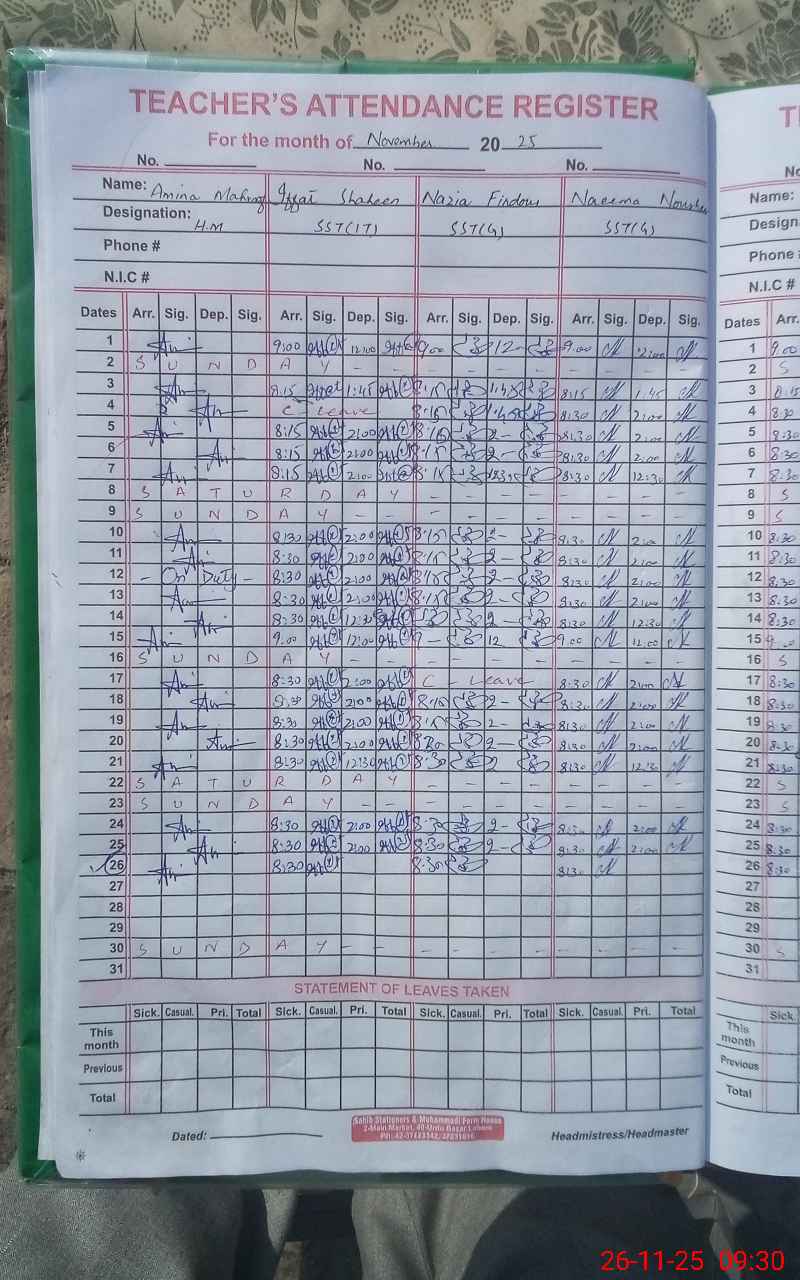 TEACHER'S ATTENDANCE REGISTER
For the month of November 20 25
No. No. No.
Name: Amina Shaheen Nazia Firdous Naeema
Designation: H.M SST(IT) SST(G) SST(G)
Phone #
N.I.C #
Dates Arr. Sig. Dep. Sig. Arr. Sig. Dep. Sig. Arr. Sig. Dep. Sig. Arr. Sig. Dep. Sig.
1 9:00 12:00 9.00 12- 9.00 12:00
2 S U N D A Y - - - - - - - -
3 8:15 1:45 8:15 1:45 8:15 1:45
4 C - Leave 8:15 1:45 8:30 2:00
5 8:15 2:00 8:15 2- 8:30 2:00
6 8:15 2:00 8:15 2- 8:30 2:00
7 8:15 2:00 8:15 12:30 8:30 12:30
8 S A T U R D A Y - - - - - - - -
9 S U N D A Y - - - - - - - -
10 8:30 2:00 8:15 2- 8:30 2:00
11 8:30 2:00 8:15 2- 8:30 2:00
12 - On Duty - 8:30 2:00 8:15 2- 8:30 2:00
13 8:30 2:00 8:15 2- 8:30 2:00
14 8:30 12:30 2- 8:30 12:30
15 9:00 12:00 9- 12 9.00 12:00
16 S U N D A Y - - - - - - - -
17 8:30 2:00 C - Leave 8:30 2:00
18 8:30 2:00 8:15 2- 8:30 2:00
19 8:30 2:00 8:15 2- 8:30 2:00
20 8:30 2:00 8:30 2- 8:30 2:00
21 8:30 12:30 8:30 2 8:30 12:30
22 S A T U R D A Y - - - - - - - -
23 S U N D A Y - - - - - - - -
24 8:30 2:00 8:30 2- 8:30 2:00
25 8:30 2:00 8:30 2- 8:30 2:00
26 8:30 8:30 8:30
27
28
29
30 S U N D A Y - - - - - - - -
31
STATEMENT OF LEAVES TAKEN
Sick. Casual. Pri. Total Sick. Casual. Pri. Total Sick. Casual. Pri. Total Sick. Casual. Pri. Total
This month
Previous
Total
Dated: Headmistress/Headmaster
Sahib Stationers & Muhammadi Form House
2-Main Market, 40-Urdu Bazar Lahore
Name:
Design
Phone
N.I.C #
Dates Arr.
1 9.00
2 S
3 8:15
4 8:30
5 8:30
6 8:30
7 8:30
8 S
9 S
10 8:30
11 8:30
12 8:30
13 8:30
14 8:30
15 9.00
16 S
17 8:30
18 8:30
19 8:30
20 8:30
21 8:30
22 S
23 S
24 8:30
25 8:30
26 8:30
27
28
29
30 S
31
Sick
This month
Previous
Total
26-11-25 09:30